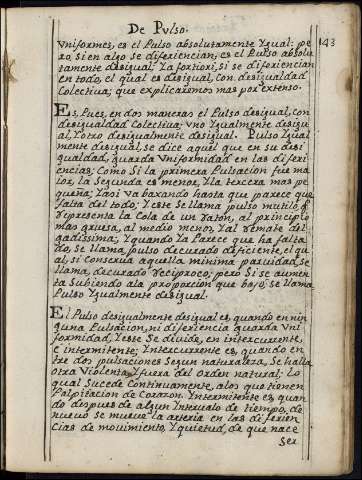 De Pulso.
143
Vniformes, es el Pulso absolutamente Ygual: pe
ro, si en algo se diferencian, es el Pulso absolu
tamente desigual, Ya fortiori, si se diferencian
en todo, el qual es desigual, Con, desigualdad
Colectiva; que explicaremos mas por extenso.
Es, Pues, en dos maneras el Pulso desigual, con
desigualdad Colectiva; vno Ygualmente desigu
al, Y otro desigualmente desigual. Pulso Ygual
mente desigual, se dice aquel que en su desi
gualdad, guarda Vniformidad en las diferi
encias; Como Si la primera Pulsacion fue ma
ior, la Segunda es menor, Y la tercera mas pe
queña; Y asi va baxando hasta que parece que
falta del todo; Y este se llama pulso mutilo, q
representa la Cola de un raton, al principio
mas gruesa, al medio menor, Y al remate del
gadissima, Y quando Ya Parece que ha falta
do, se llama, pulso decurado deficiente, el qu
al, si Conserva aquella minima parvidad, se
llama, decurado reciproco; pero Si se aumen
ta Subiendo ala proporcion que bajó, se llama
Pulso Ygualmente desigual.
El Pulso desigualmente desigual es, quando en nin
guna Pulsacion, ni diferencia guarda Vni
formidad, Y este Se divide, en intercurente,
e intermitente; Intercurente es, quando en
tre dos pulsaciones Segun naturaleza, Se halla
otra Violenta, Y fuera del Orden natural; Lo
qual Sucede Continuamente, alos que tienen
Palpitacion de Corazon. Intermitente es quan
do despues de algun Intervalo de tiempo, de
nuevo se mueve la arteria en las diferien
Cias de movimiento, Y quietud, de que nace
Ser